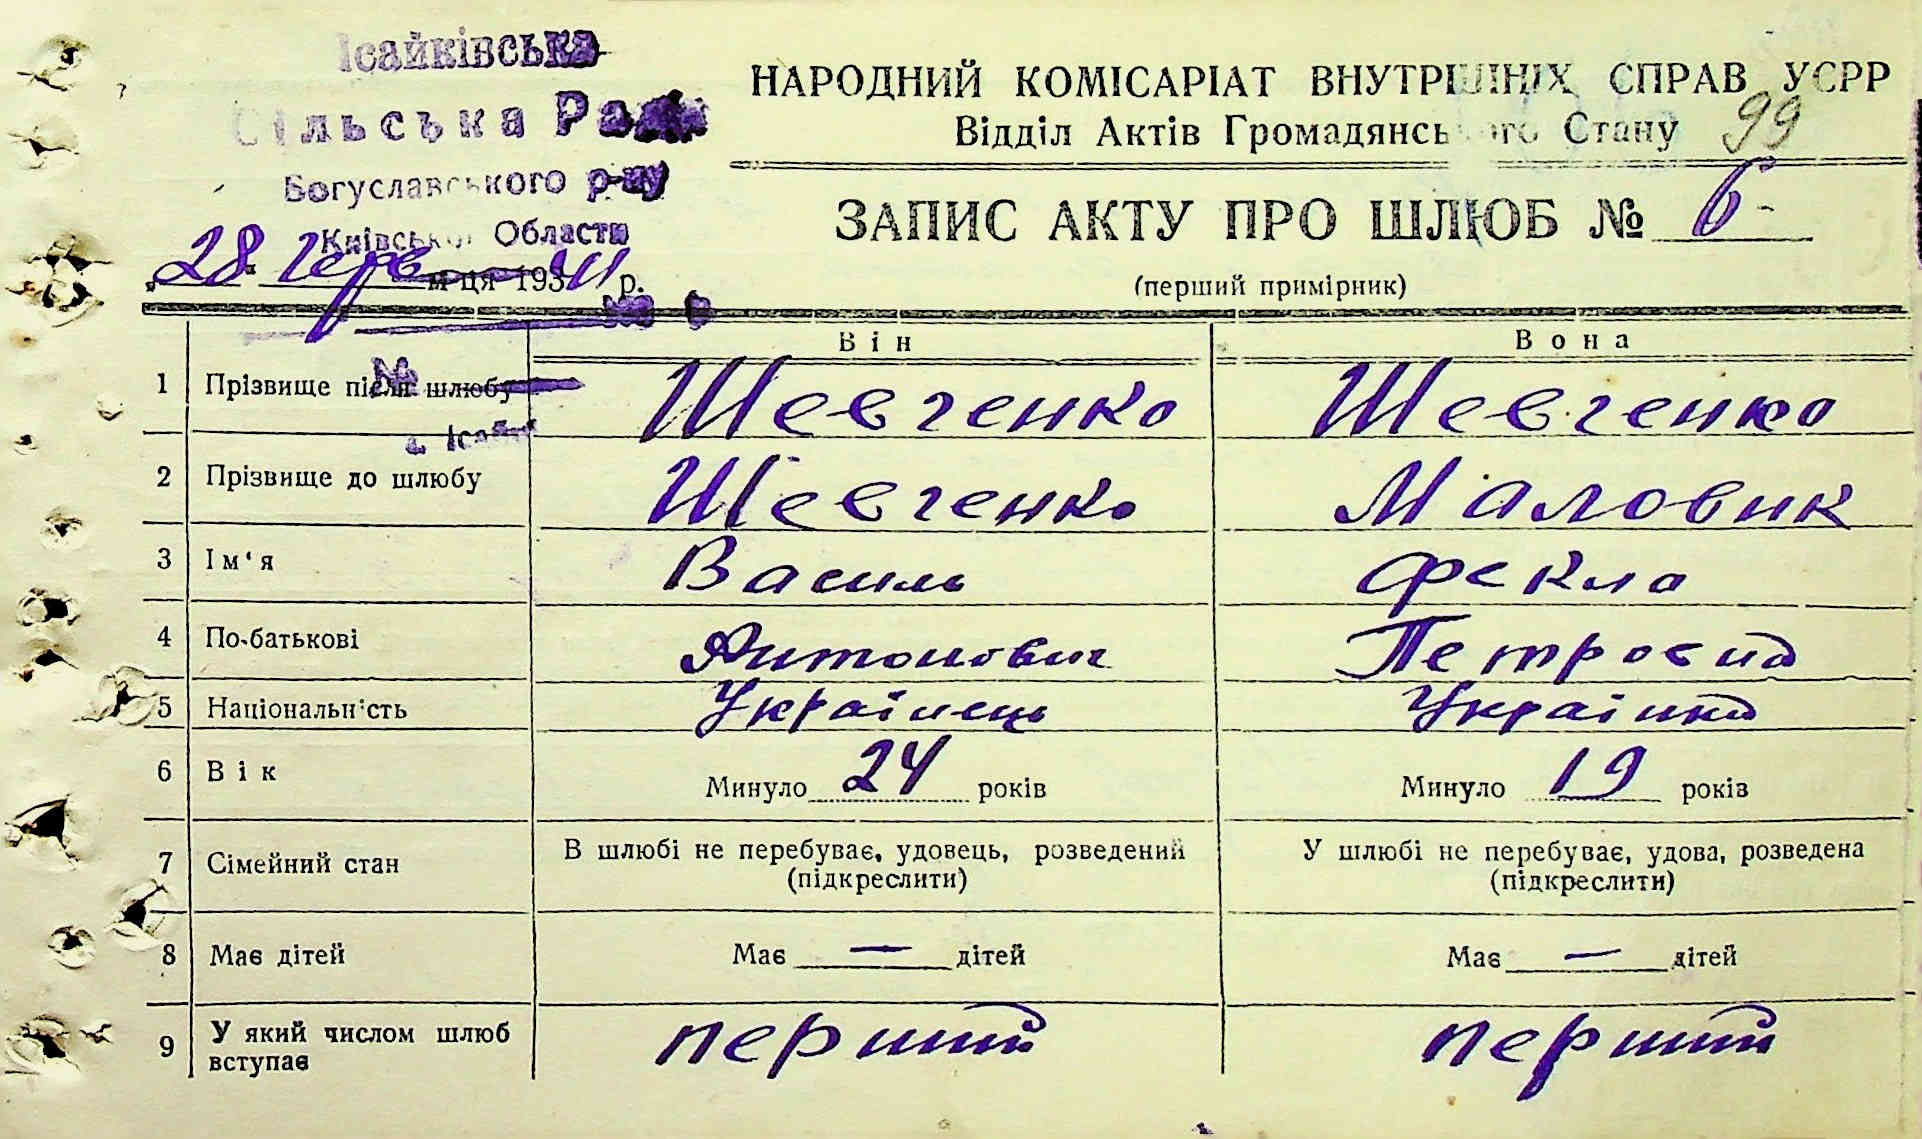 Ісайківська
Сільська Рада
Богуславського р-ну
Київської Области
„28" Черв м-ця 1941 р.
№
с. Ісайки
НАРОДНИЙ КОМІСАРІАТ ВНУТРІШНІХ СПРАВ УСРР
Відділ Актів Громадянського Стану
99
ЗАПИС АКТУ ПРО ШЛЮБ № 6-
(перший примірник)
Він Вона
1 Прізвище після шлюбу Шевченко Шевченко
2 Прізвище до шлюбу Шевченко Маловик
3 Ім‘я Василь Фекла
4 По-батькові Антонович Петровна
5 Національність Українець Українка
6 Вік Минуло 24 років Минуло 19 років
7 Сімейний стан В шлюбі не перебуває, удовець, розведений У шлюбі не перебуває, удова, розведена
(підкреслити) (підкреслити)
8 Має дітей Має — дітей Має — дітей
9 У який числом шлюб вступає перший перший